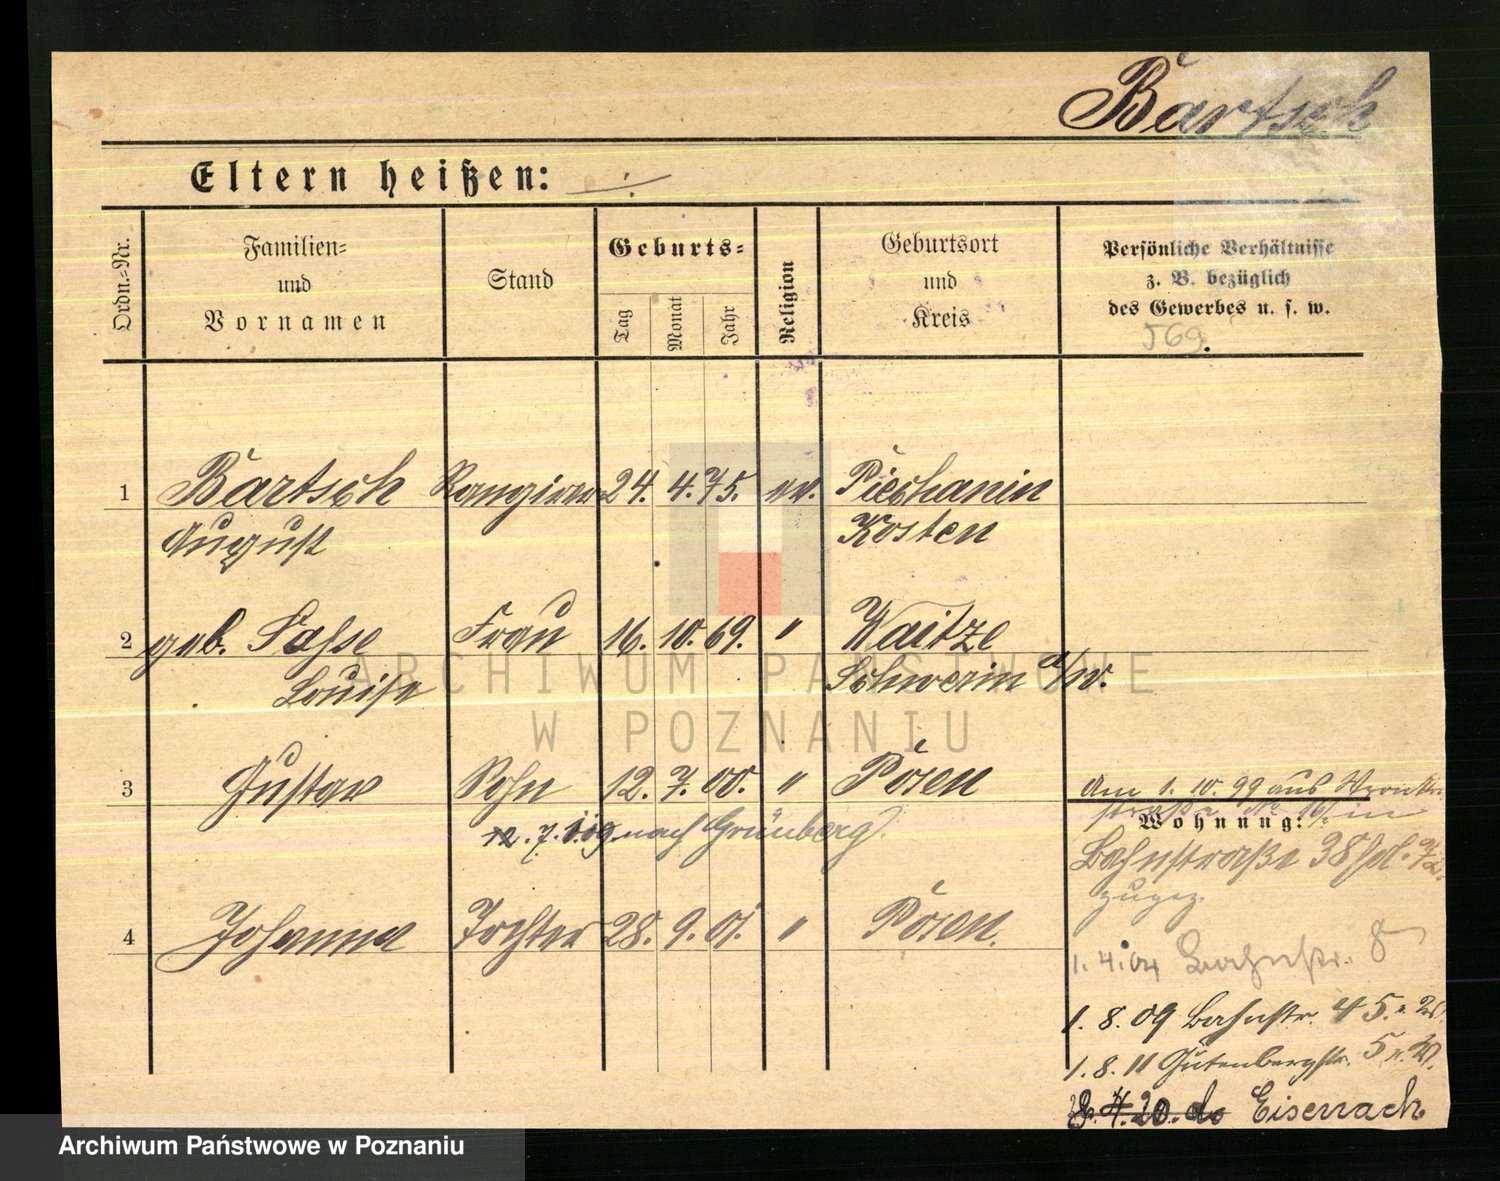 Bartsch
Eltern heißen: ./.
Ordn.-Nr.
Familien-
und
Vornamen
Stand
Geburts-
Tag
Monat
Jahr
Religion
Geburtsort
und
Kreis
Persönliche Verhältnisse
z. B. bezüglich
des Gewerbes u. s. w.
569.
1 Bartsch Rangierer 24. 4. 75. ev. Piechanin
August Kosten
2 geb. Sasse Frau 16. 10. 69. " Waitze
Louise Schwerin a/W.
3 Gustav Sohn 12. 7. 00. " Posen
12. 7. 09. nach Grünberg.
Am 1. 10. 99 aus
Wohnung:
Bahnstraße 38
zugez.
4 Johanna Tochter 28. 9. 01. " Posen.
1. 4. 04 Bahnstr. 8
1. 8. 09 Bahnstr. 45.
1. 8. 11 Gutenbergstr. 5
8. 4. 20. do Eisenach
ARCHIWUM PAŃSTWOWE
W POZNANIU
Archiwum Państwowe w Poznaniu